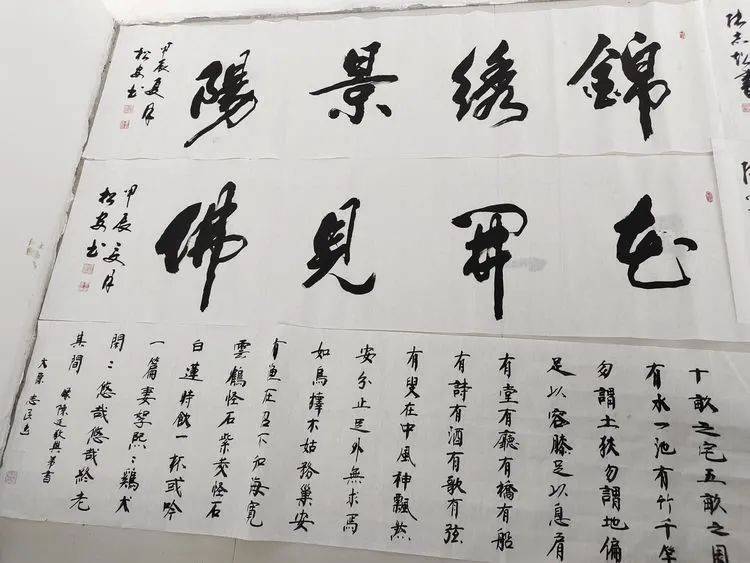 錦绣景陽
甲辰夏月
松安书
花開見佛
甲辰夏月
松安书
十畝之宅五畝之園
有水一池有竹千竿
勿謂土狹勿謂地偏
足以容膝足以息肩
有堂有廳有橋有船
有詩有酒有歌有弦
有叟在中風神飄然
安分止足外無求焉
如鳥擇木姑務巢安
有魚在沼不知海寬
雲鶴怪石紫菱怪石
白蓮時飲一杯或吟
一篇妻孥熙〻鷄犬
閑〻悠哉悠哉終老
其間